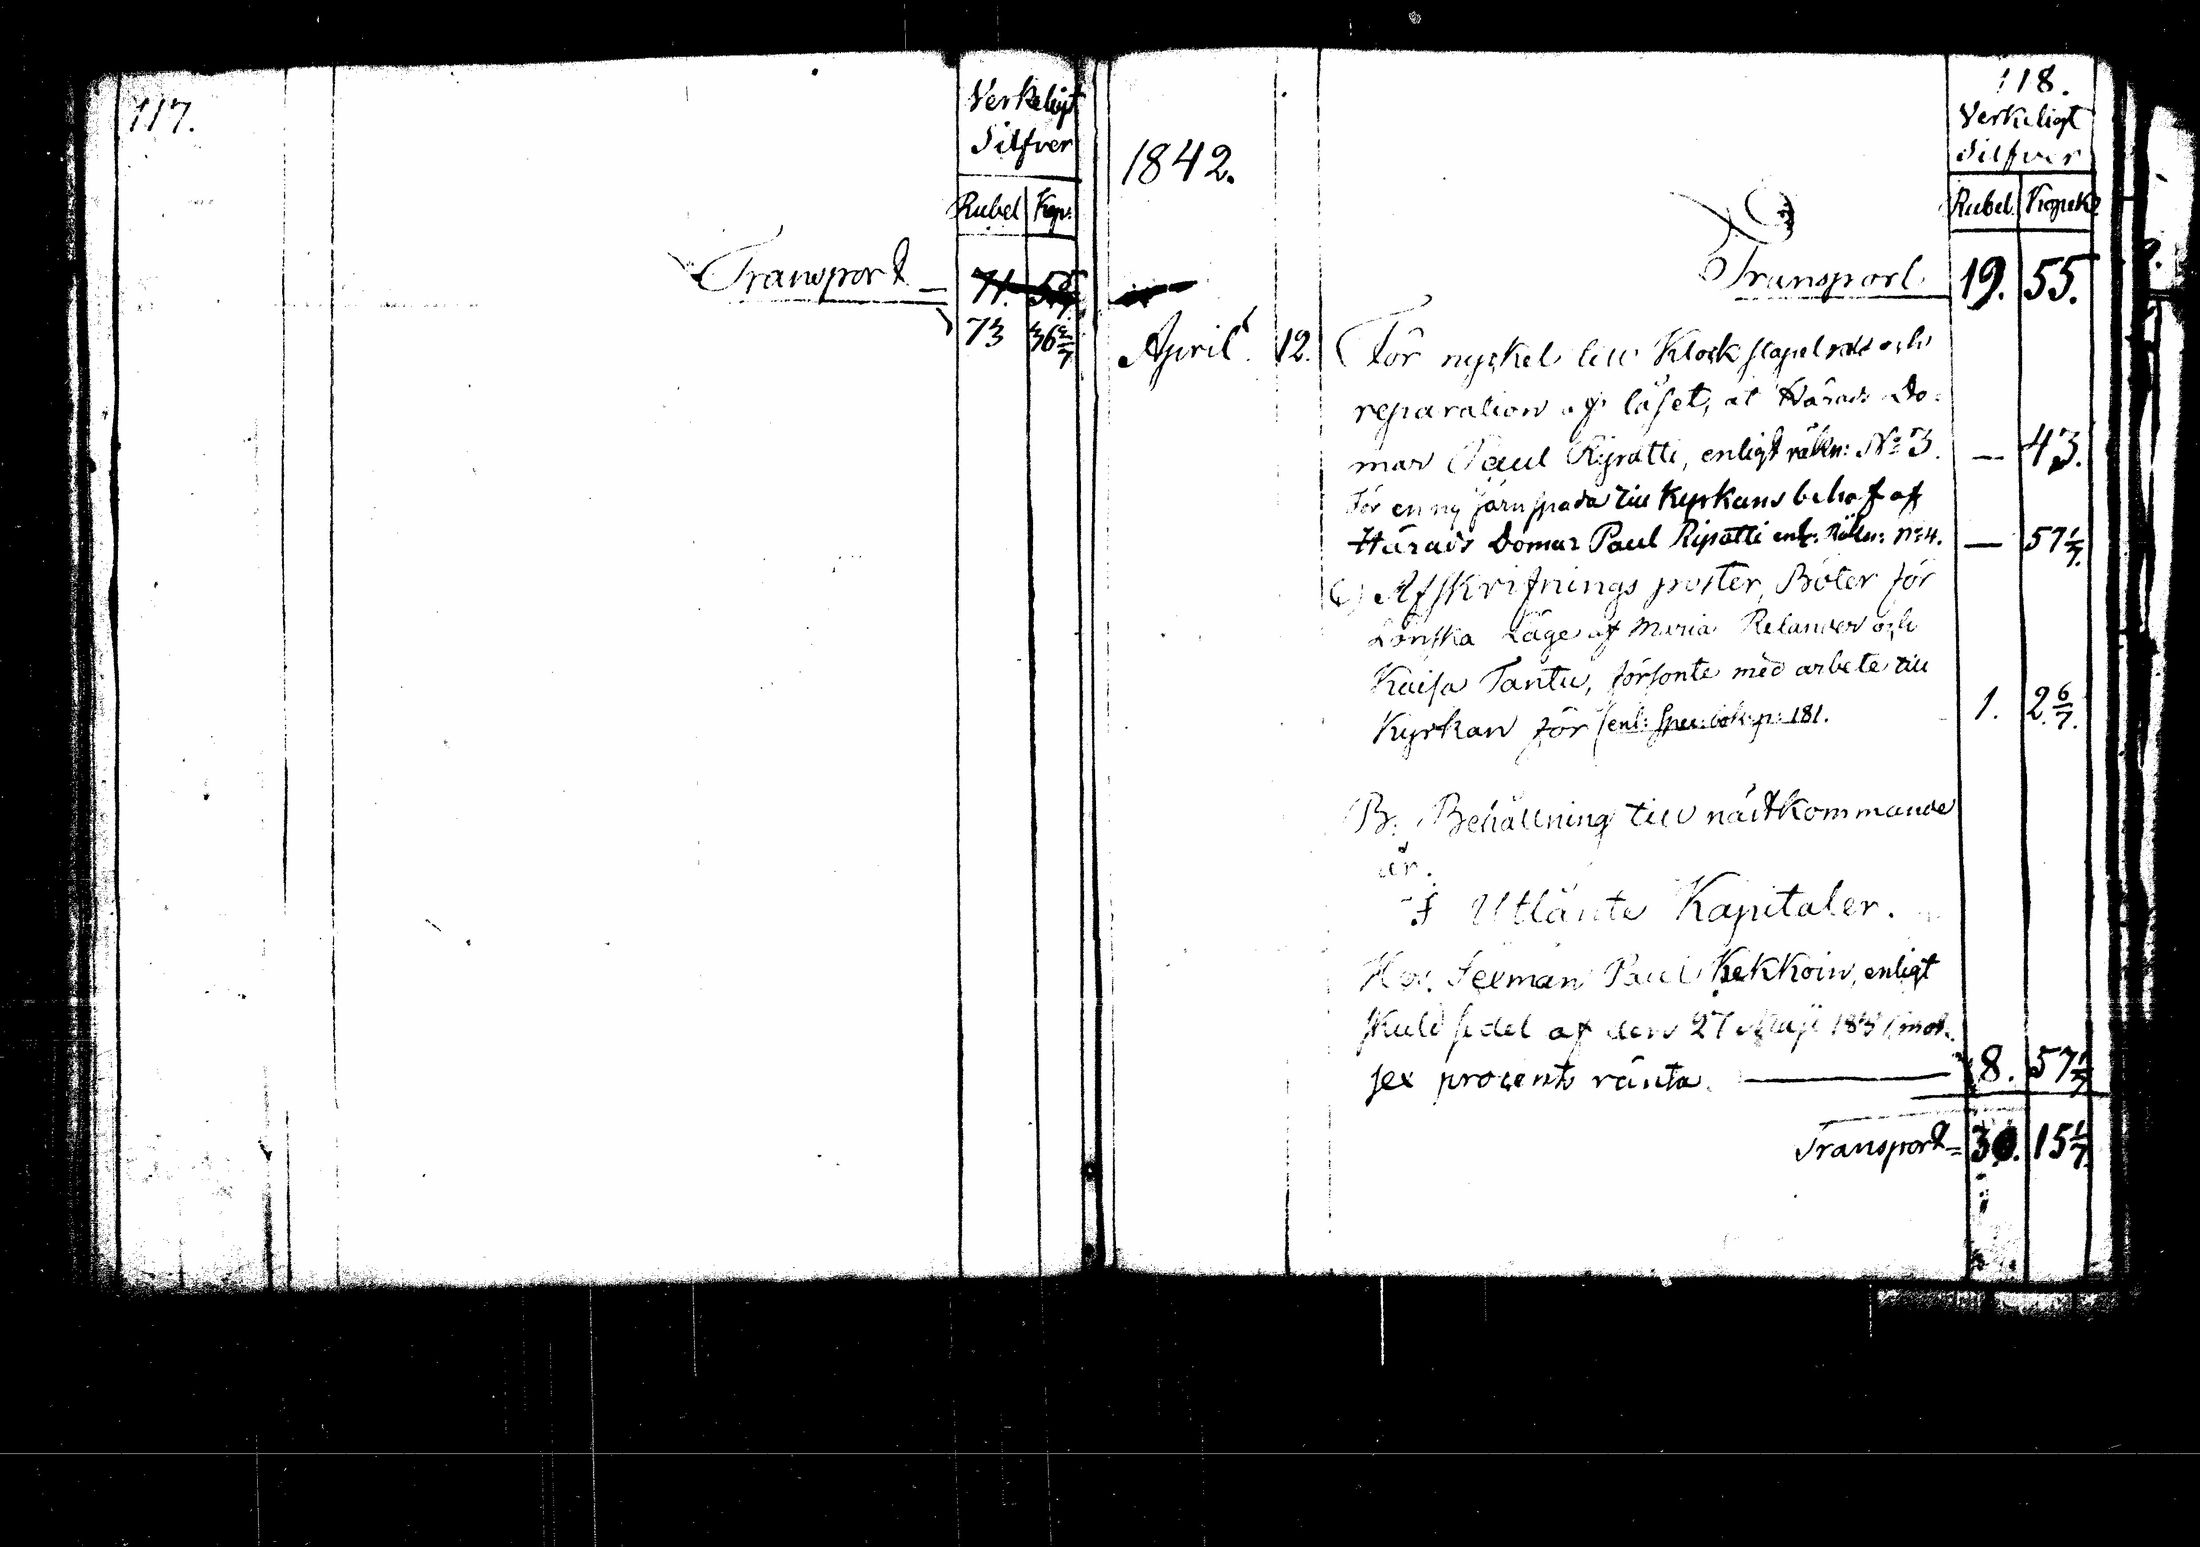 117.
Verkeligt
Silfver
Rubel Kop:
Transport 71. 5
73 36 3/7
118.
1842.
Verkeligt
Silfver
Rubel Kopek
Transport 19. 55.
April 12. För nyckel till Klock stapeln och
reparation af låset, åt Härads Do-
mar Paul Ripatti, enligt räkn: No 3. — 43.
För en ny järn spada till Kyrkans behof af
Härads Domar Paul Ripatti enl: Räkn: No 4. — 57 1/7
C) Afskrifnings poster, Böter för
Lönska Läge af Maria Relander och
Kaisa Tantu, försonte med arbete till
Kyrkan för (enl: spec: bok: p: 181. 1. 2 6/7.
B: Behållning till nästkommande
år.
I Utlänte Kapitaler.
Hos Sexman Paul Kekkoin, enligt
skuld sedel af den 27 Maji 183 mot
sex procents ränta. 8. 57 1/7
Transport = 30. 15 1/7